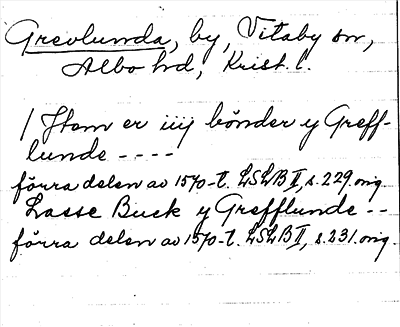 Grevlunda, by, Vitaby sn,
Albo hd, Krist. l.
/ Item er iiij bönder y Greff-
lunde - - - -
förra delen av 1570-t. LSLB II, s. 229. orig.
Lasse Buck y Grefflunde - -
förra delen av 1570-t. LSLB II, s. 231. orig.